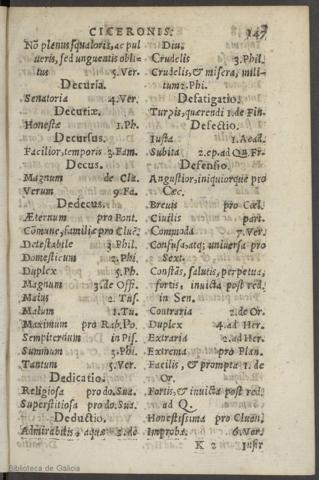 CICERONIS. 147
Nõ plenus squaloris, ac pul
ueris, sed unguentis obli-
tus 5. Ver.
Decuria.
Senatoria 4. Ver.
Decuriæ.
Honestæ 1. Ph.
Decursus.
Facilior, temporis 3. Fam.
Decus.
Magnum de Cla.
Verum 9. Fa.
Dedecus.
Æternum pro Font.
Cõmune, familiæ pro Cluẽ.
Detestabile 3 Phil.
Domesticum 2. Phi.
Duplex 5. Ph.
Magnum 3. de Off.
Maius 2. Tus.
Malum 1. Tu.
Maximum pro Rab. Po.
Sempiternum in Pis.
Summum 3. Phi.
Tantum 5. Ver.
Dedicatio.
Religiosa pro do. Sua.
Superstitiosa pro do. Sua.
Deductio.
Admirabilis, aquæ 2. de
Diu.
Crudelis 3. Phil.
Crudelis, & misera, mili-
tum 2. Phi.
Defatigatio.
Turpis, querendi 1. de Fin.
Defectio.
Iusta 1. Acad.
Subita 2. ep. ad Qu. Fr.
Defensio.
Angustior, iniquiorque pro
Cæc.
Breuis pro Cæl.
Ciuilis part.
Commoda 7. Ver.
Confusa, atq; uniuersa pro
Sext.
Constãs, salutis, perpetua,
fortis, inuicta post red.
in Sen.
Contraria 2. de Or.
Duplex 4. ad Her.
Extraria 2. ad Her.
Extrema pro Plan.
Facilis, & prompta 1. de
Or.
Fortis, & inuicta post red.
ad Q.
Honestissima pro Cluen.
Improba 6. Ver.
K 2 Insti
Biblioteca de Galicia